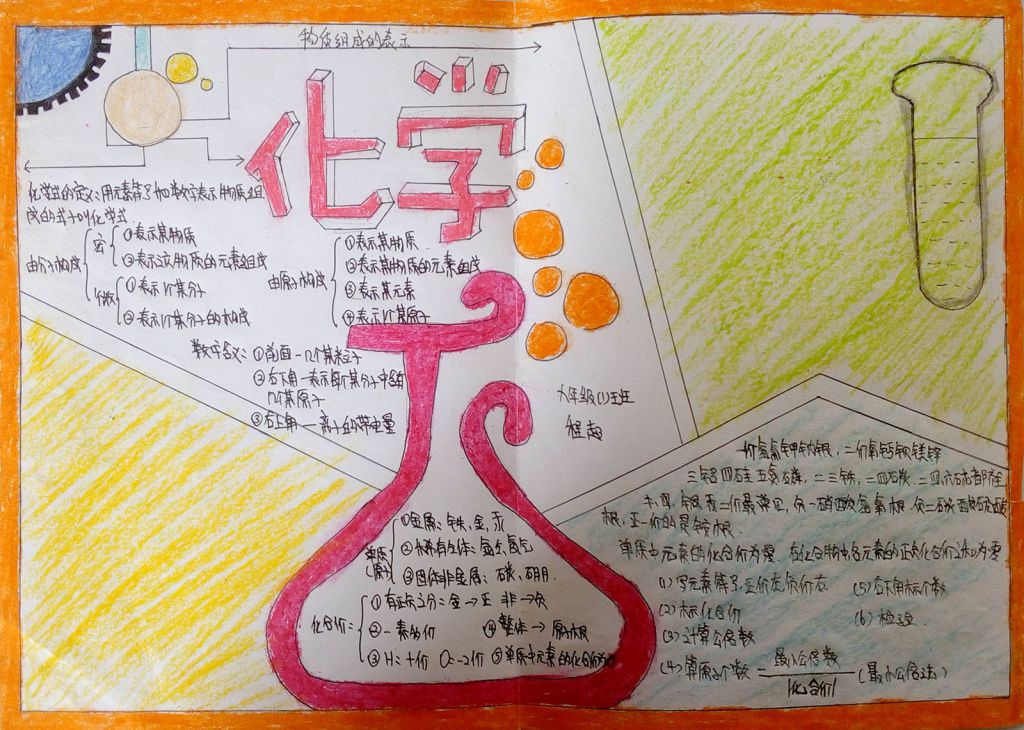 物质组成的表示
化学
化学式的定义:用元素符号和数字表示物质组
成的式子叫化学式
由分子构成
宏
①表示某物质
②表示这物质的元素组成
微
①表示1个某分子
②表示1个某分子的构成
由原子构成
①表示某物质
②表示某物质的元素组成
③表示某元素
④表示1个某原子
数字含义:①前面一几个某粒子
②右下角一表示每个某分子中含有
几个某原子
③右上角一离子的带电量
九年级(1)班
程
单质
①金属:铁,金,汞
②稀有气体:氩气,氦气
③固体非金属:碳、硼
化合价:
①有正负之分:金→正 非→负
②一素多价
④整体→原子根
③H:+1价 O:-2价 ⑤单质中元素的化合价为0
一价氢氯钾钠银,二价氧钙钡镁锌
三铝四硅五氮磷,二三铁,二四碳.二四六硫都齐全
汞二价最常见,负一硝酸氢氧根.负二碳酸硫酸
根,正一价的是铵根.
单质中元素的化合价为零.在化合物中各元素的正负化合价之和为零
(1)写元素符号,正价左,负价右
(5)右下角标个数
(2)标化合价
(6)检验.
(3)计算公倍数
(4)算原子个数=最小公倍数/|化合价| (最小公倍法)